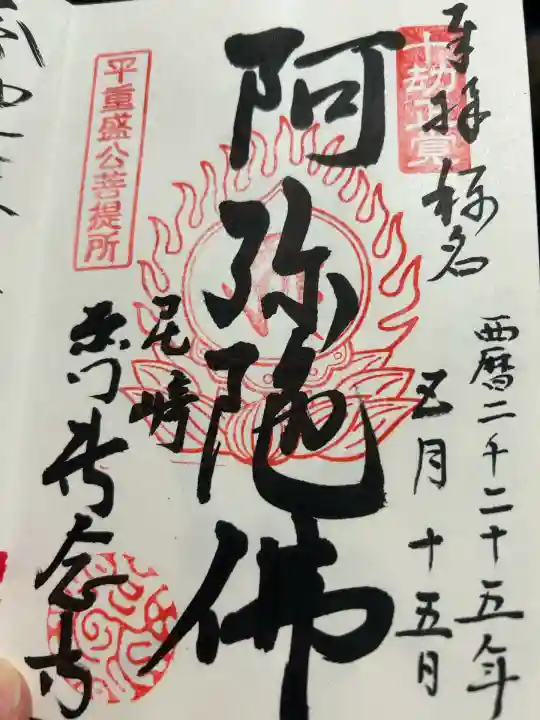 奉拝 称名
十劫正覚
西暦二千二十五年
五月十五日
阿弥陀佛
平重盛公菩提所
尼崎
専念寺